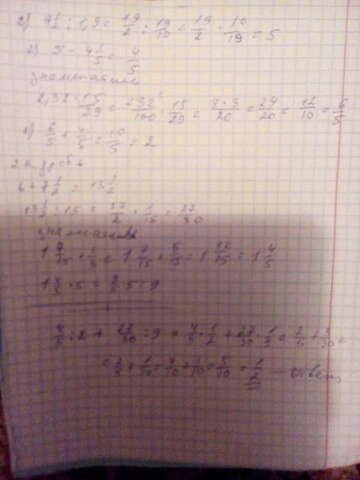 2) 9 1/2 : 1,9 = 19/2 : 19/10 = 19/2 · 10/19 = 5
5 - 4 1/5 = 4/5
знаменатель
2,32 · 15/29 = 232/100 · 15/29 = 8·3/20 = 24/20 = 12/10 = 6/5
6/5 + 4/5 = 10/5 = 2
2
6 + 7 1/2 = 13 1/2
13 1/2 : 15 = 27/2 · 1/15 = 27/30
знаменатель
= 1 7/15 + 5/15 = 1 12/15 = 1 4/5
1 4/5 · 5 = 9/5 · 5 = 9
4/5 : 2 + 27/30 : 9 = 4/5 · 1/2 + 27/30 · 1/9 = 2/5 + 3/30 =
= 2/5 + 1/10 = 4/10 + 1/10 = 5/10 = 1/2 - ответ